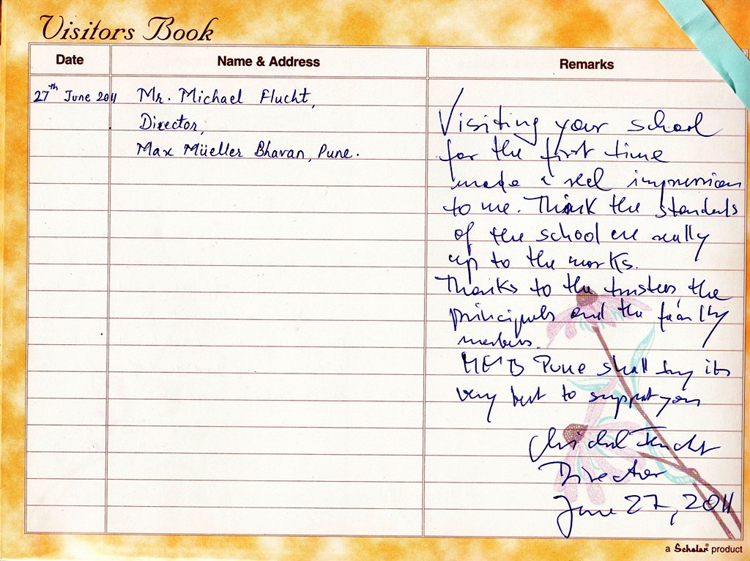 Visitors Book
Date
Name & Address
Remarks
27th June 2011
Mr. Michael Flucht,
Director,
Max Müeller Bhavan, Pune.
Visiting your school
for the first time
made a real impression
to me. Think the standards
of the school are really
up to the marks.
Thanks to the trustees the
principals and the faculty
members.
MMB Pune shall try its
very best to support you
Michael Flucht
Director
June 27, 2011
a Scholar product